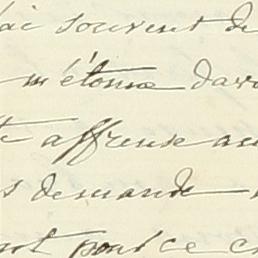 ai souvent de
m'étonne dav
affreuse au
s demande
pour ce c